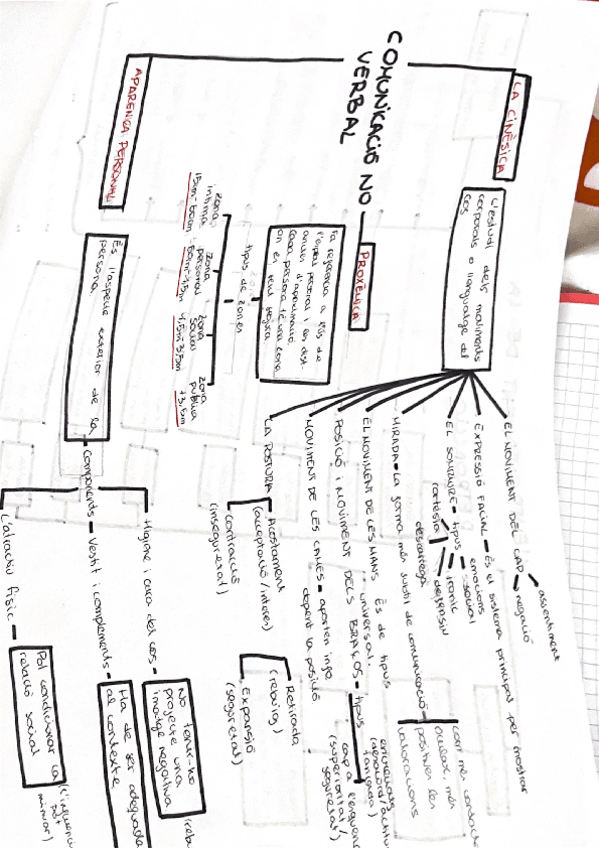 COMUNICACIÓ NO
VERBAL
LA CINÈSICA
L'estudi dels moviments
corporals o llenguatge del
cos
EL MOVIMENT DEL CAP
assentiment
negació
EXPRESSIÓ FACIAL - És el sistema principal per mostrar
emocions
EL SOMRIURE - tipus
social
irònic
defensiu
cortesia
descarrega
MIRADA - La forma més subtil de comunicació
com més contacte
ocular, més
positives les
valoracions
EL MOVIMENT DE LES MANS
És de tipus
universal.
POSICIÓ I MOVIMENT DELS BRAÇOS - tipus
cap a
(superioritat/
seguretat)
MOVIMENT DE LES CAMES - aporten info
depent la posició
LA POSTURA
Acostament
(acceptació/interès)
contracció
(inseguretat)
Retirada
(rebuig)
Expansió
(seguretat)
PROXÈMICA
Fa referencia a l'ús de
l'espai personal i les dist-
ancies d'aproximació.
Cada persona té una zona
on es sent segura
tipus de zones
zona
íntima
15cm-
zona
personal
zona
social
zona
pública
+3,5m
APARENÇA PERSONAL
És l'aspecte exterior de la
persona
Components
Higiene i cura del cos
No tenir-ho
projecte una
imatge negativa
Vestit i complements
Ha de ser adequada
al contexte
L'atractiu físic
Pot condicionar la
relació social
(L'influencia
pot
minvar)